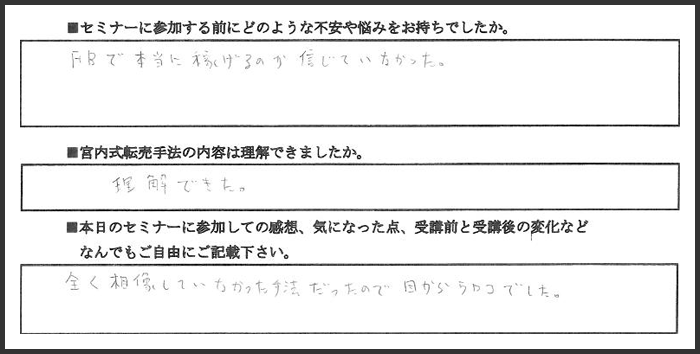 ■セミナーに参加する前にどのような不安や悩みをお持ちでしたか。
FBで本当に稼げるのか信じていなかった。
■宮内式転売手法の内容は理解できましたか。
理解できた。
■本日のセミナーに参加しての感想、気になった点、受講前と受講後の変化など
なんでもご自由にご記載下さい。
全く想像していなかった手法だったので目からウロコでした。